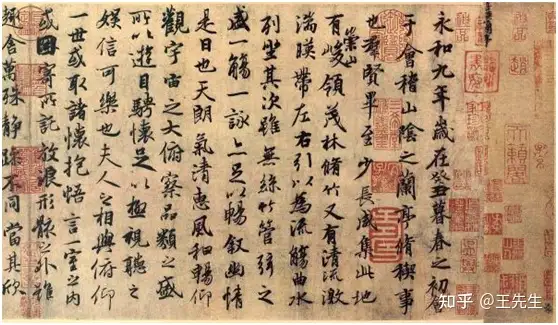 永和九年歲在癸丑暮春之初會
于會稽山陰之蘭亭脩禊事
也羣賢畢至少長咸集此地
有崇山峻領茂林脩竹又有清流激
湍暎帶左右引以為流觴曲水
列坐其次雖無絲竹管弦之
盛一觴一詠亦足以暢叙幽情
是日也天朗氣清惠風和暢仰
觀宇宙之大俯察品類之盛
所以遊目騁懷足以極視聽之
娛信可樂也夫人之相與俯仰
一世或取諸懷抱悟言一室之內
或因寄所託放浪形骸之外雖
趣舍萬殊靜躁不同當其欣
知乎 @王先生